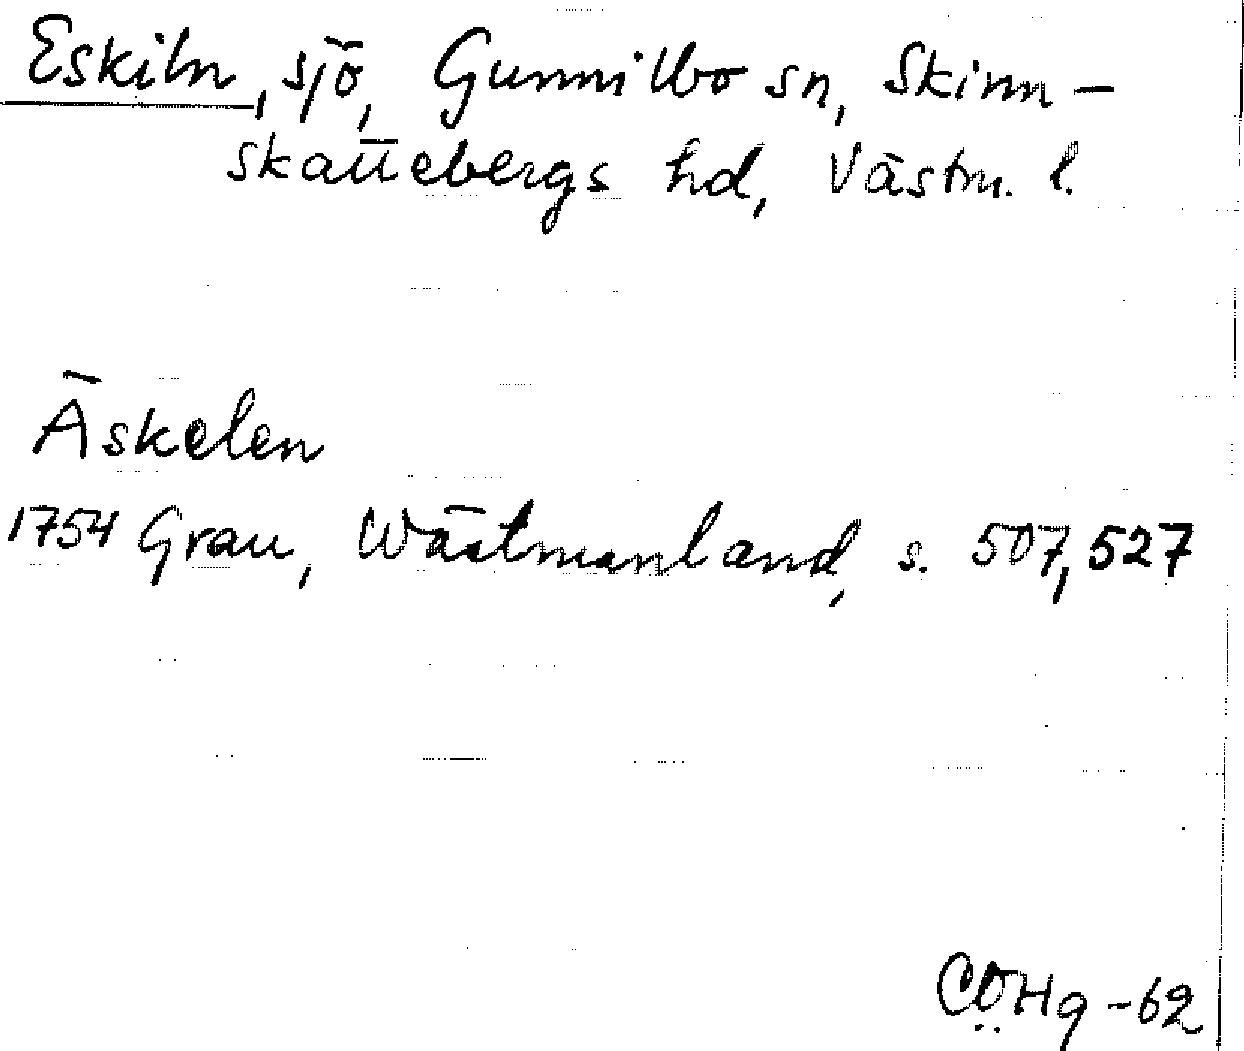 Eskiln, sjö, Gunnilbo sn, Skinn-
skattebergs hd, Västm. l.
Äskelen
1754 Grau, Wästmanland, s. 507, 527
CÖHg -62